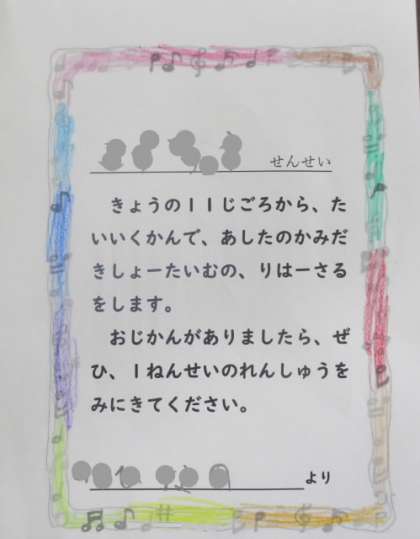 せんせい
きょうの11じごろから、た
いいくかんで、あしたのかみだ
きしょーたいむの、りはーさる
をします。
おじかんがありましたら、ぜ
ひ、1ねんせいのれんしゅうを
みにきてください。
より